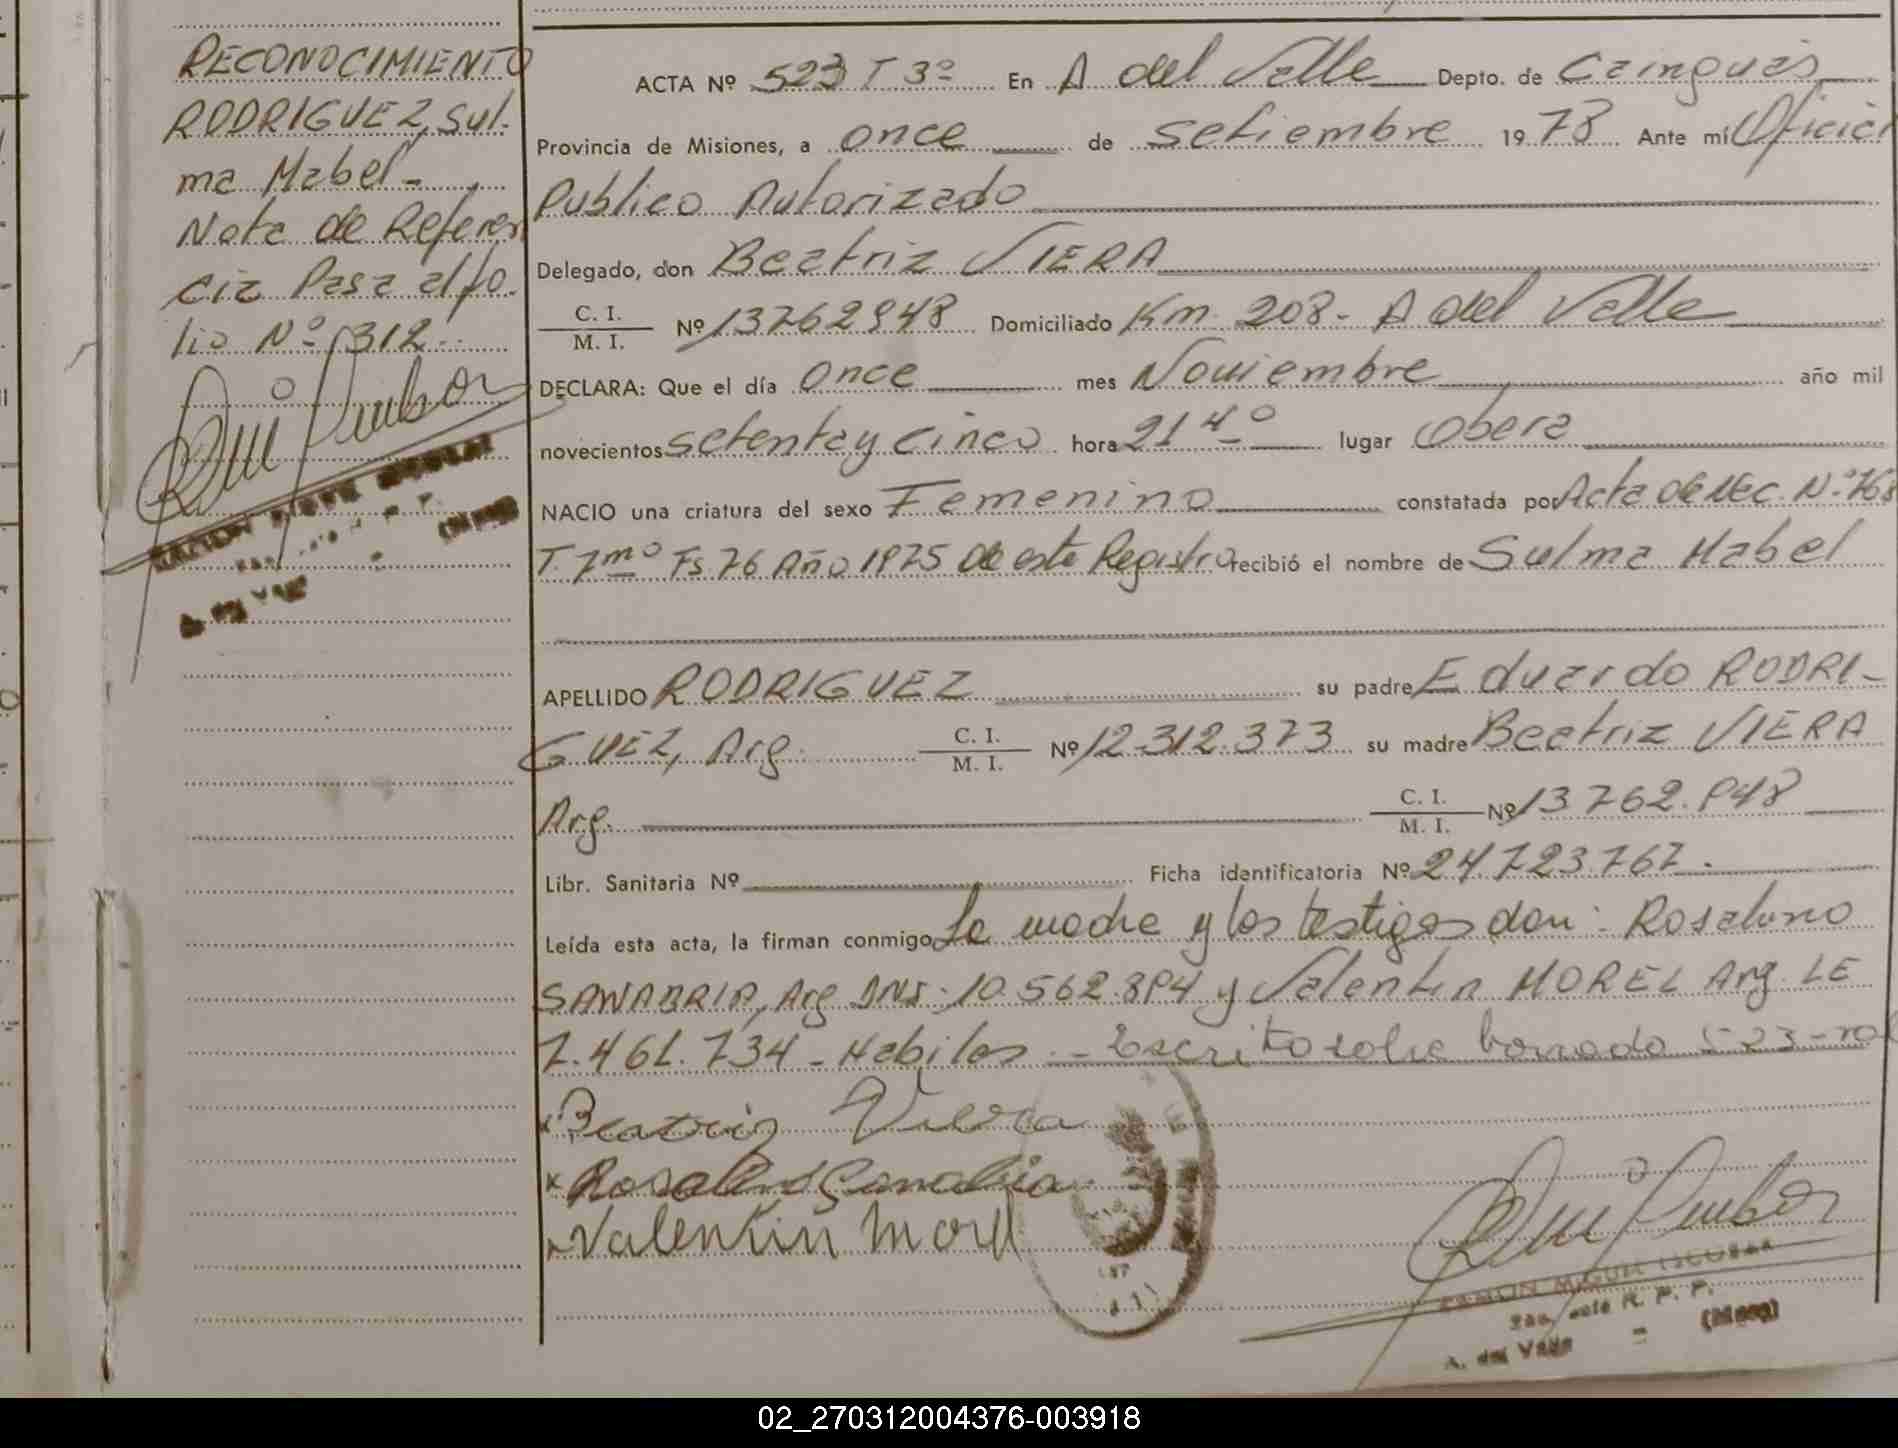 RECONOCIMIENTO
RODRIGUEZ, Sul-
ma Mabel-
Nota de Referen
cia Pasa al fo-
lio Nº 312-
A. del Valle
ACTA Nº 523 T 3º En A del Valle Depto. de Cainguás
Provincia de Misiones, a once de Setiembre 1978 Ante mi Oficial
Publico Autorizado
Delegado, don Beatriz VIERA
C. I.
M. I. Nº 13762948 Domiciliado Km 208- A del Valle
DECLARA: Que el día once mes Noviembre año mil
novecientos setenta y cinco hora 21 40 lugar Obera
NACIO una criatura del sexo Femenino constatada por Acta de Nec. Nº
T. 7mo Fs 76 Año 1975 de este Registro recibió el nombre de Sulma Mabel
APELLIDO RODRIGUEZ su padre Eduardo RODRI-
GUEZ, Arg. C. I.
M. I. Nº 12.312.373 su madre Beatriz VIERA
Arg. C. I.
M. I. Nº 13.762.948
Libr. Sanitaria Nº Ficha identificatoria Nº 24.723.767.
Leída esta acta, la firman conmigo La madre y los testigos don: Rosalino
SANABRIA, Arg DNI. 10.562.894 y Valentin MOREL Arg. LE
7.461.734 - Habiles. - Escrito sobre borrado 523-
x Beatriz Viera
x Rosalino Sanabria
x Valentin Morel
RAMON MIGUEL ESCOBAR
R. P. P.
A. del Valle - (Mnes)
02_270312004376-003918